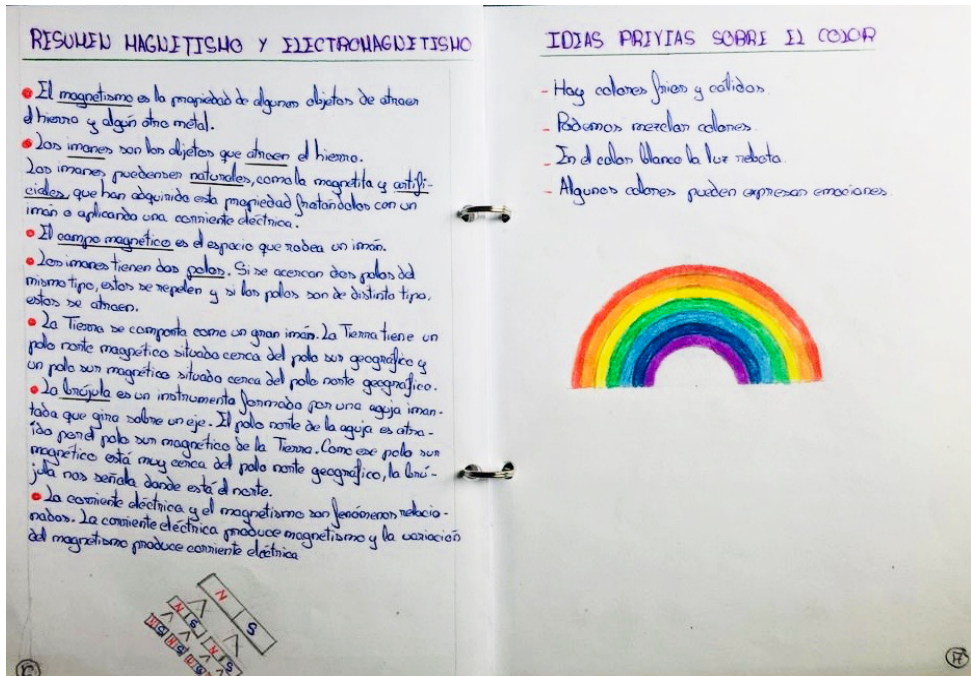 RESUMEN MAGNETISMO Y ELECTROMAGNETISMO
• El magnetismo es la propiedad de algunos objetos de atraer
el hierro y algún otro metal.
• Los imanes son los objetos que atraen el hierro.
Los imanes pueden ser naturales, como la magnetita y artifi-
ciales, que han adquirido esta propiedad frotándolos con un
imán o aplicando una corriente eléctrica.
• El campo magnético es el espacio que rodea un imán.
• Los imanes tienen dos polos. Si se acercan dos polos del
mismo tipo, estos se repelen y si los polos son de distinto tipo,
estos se atraen.
• La Tierra se comporta como un gran imán. La Tierra tiene un
polo norte magnético situado cerca del polo sur geográfico y
un polo sur magnético situado cerca del polo norte geográfico.
• La brújula es un instrumento formado por una aguja iman-
tada que gira sobre un eje. El polo norte de la aguja es atra-
ído por el polo sur magnético de la Tierra. Como ese polo sur
magnético está muy cerca del polo norte geográfico, la brú-
jula nos señala donde está el norte.
• La corriente eléctrica y el magnetismo son fenómenos relacio-
nados. La corriente eléctrica produce magnetismo y la variación
del magnetismo produce corriente eléctrica
N S
N S N S
N S N S N S N S
16
IDEAS PREVIAS SOBRE EL COLOR
- Hay colores fríos y cálidos.
- Podemos mezclar colores.
- En el color blanco la luz rebota.
- Algunos colores pueden expresar emociones.
17